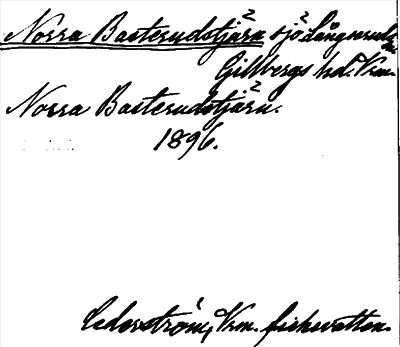 Norra Basterudstjärn sjö Långserud
Gillbergs hd. Vrm.
Norra Basterudstjärn.
1896.
Cederström, Vrm. fiskevatten.